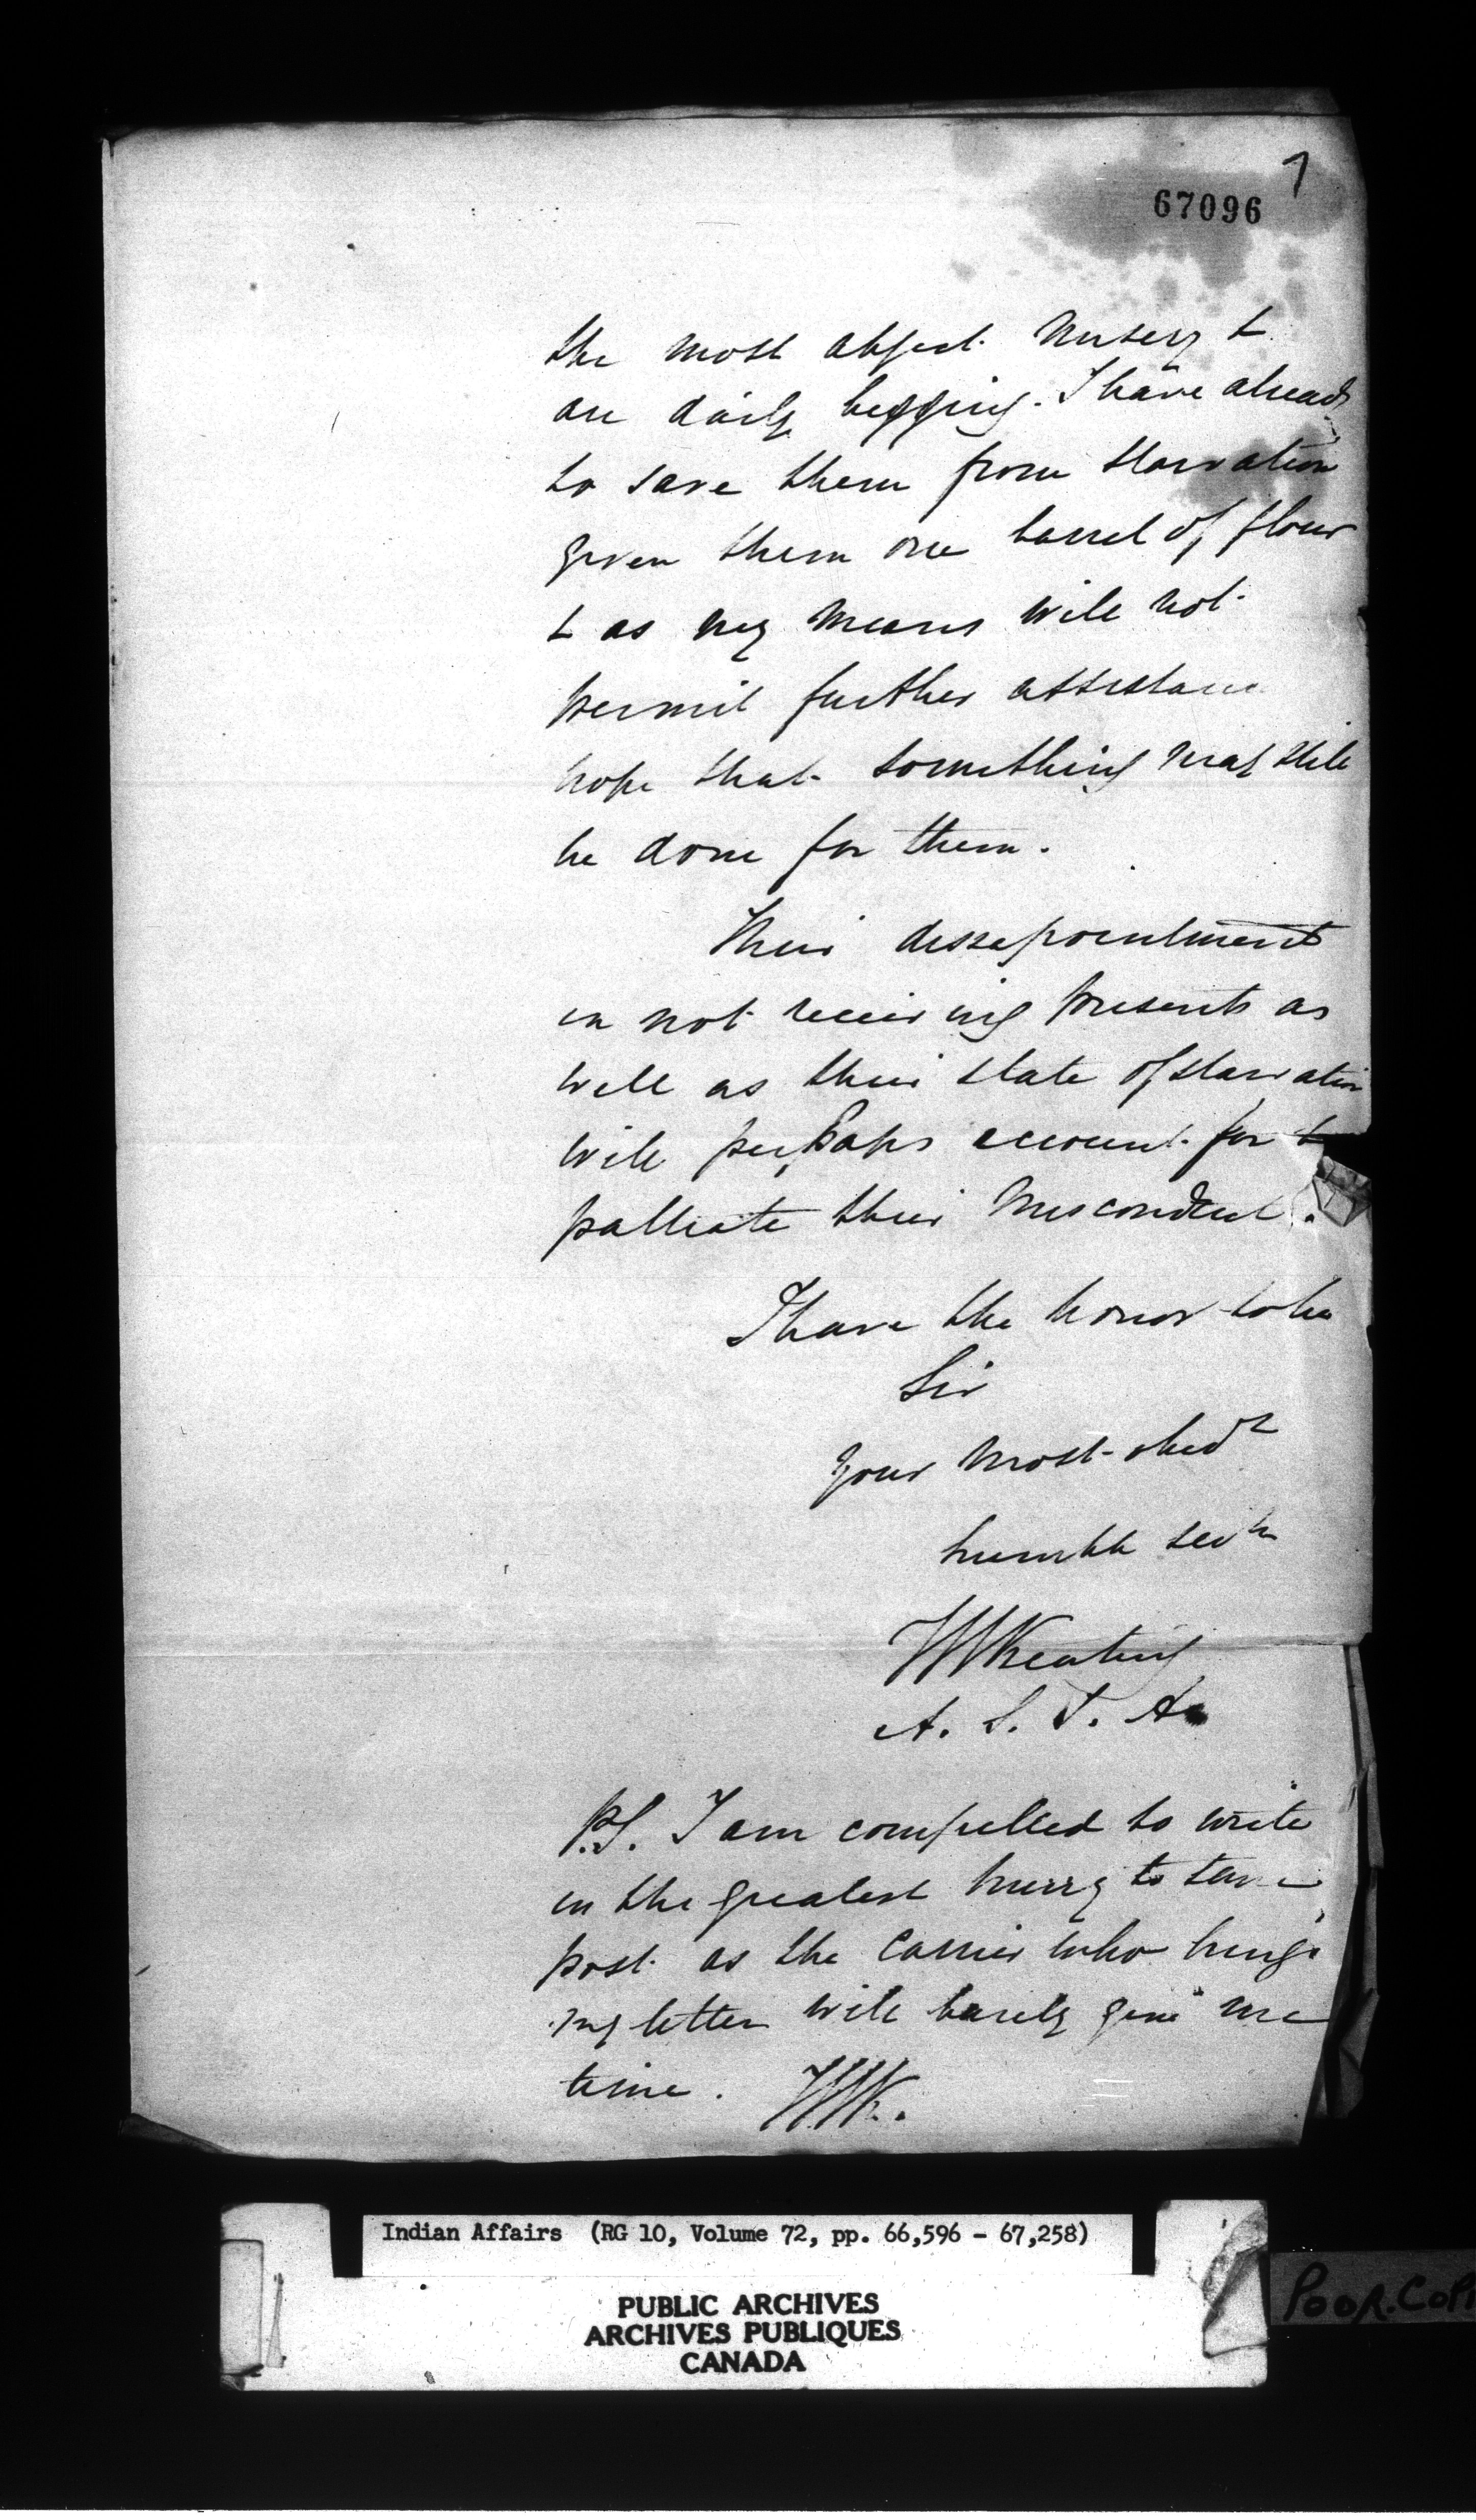 7
67096
the most abject misery &
are daily begging. I have already
to save them from starvation
given them one barrel of flour
& as my means will not
permit further assistance
hope that something may still
be done for them.
Their dissapointment
in not receiving presents as
well as their state of starvation
will perhaps account for &
palliate their misconduct.
I have the honor to be
Sir
Your most obedt
humble servt
JWKeating
A. S. I. A.
P.S. I am compelled to write
in the greatest hurry to save
post as the carrier who brings
my letter will barely give me
time. JWK.
Indian Affairs (RG 10, Volume 72, pp. 66,596 - 67,258)
PUBLIC ARCHIVES
ARCHIVES PUBLIQUES
CANADA
POOR.COPY